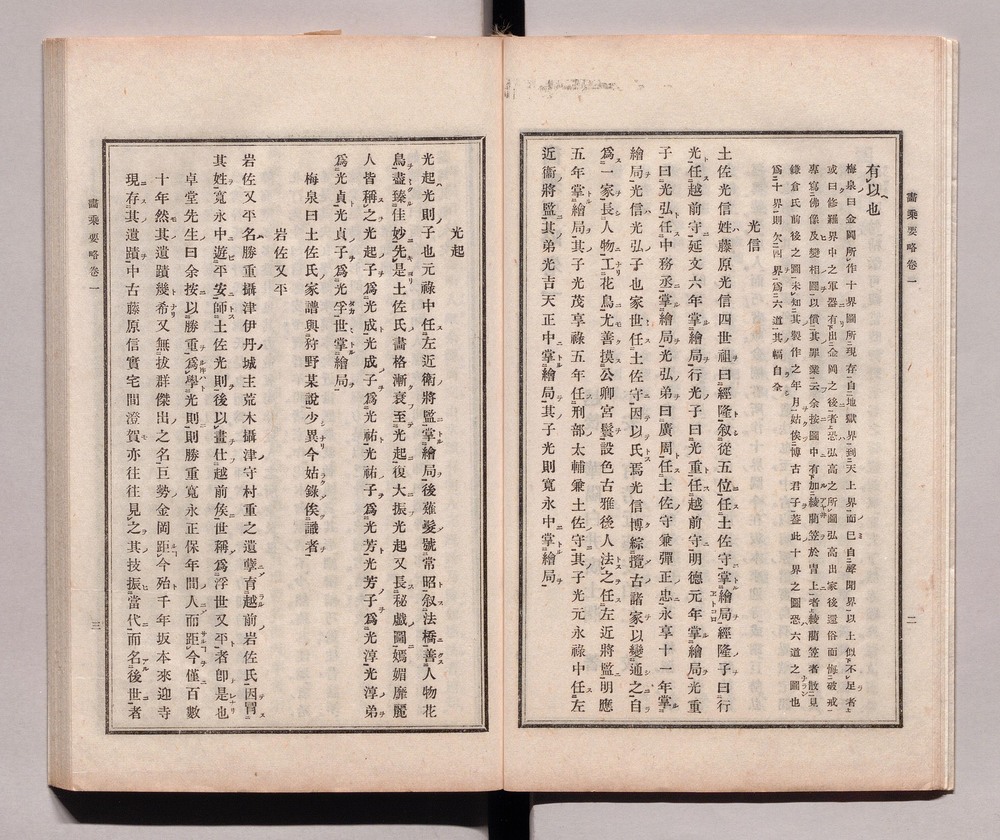 畵乘要略卷一
二
有以也
梅泉曰金岡所作十界圖所現存自地獄界到天上界而已自聲聞界以上似不足者
或曰修羅界中之軍器有出金岡之後者恐弘高之所圖弘高出家後還俗而悔破戒
專寫佛像及變相圖以償其罪業云余按圖中有加綾藺笠於冑上者綾藺笠者散見
鎌倉氏前後之圖未知其製作之年月姑俟博古君子蓋此十界之圖恐六道之圖也
爲十界則欠四界爲六道其幅自全
光信
土佐光信姓藤原光信四世祖曰經隆叙從五位任土佐守掌繪局經隆子曰行
光任越前守延文六年掌繪局行光子曰光重任越前守明德元年掌繪局光重
子曰光弘任中務丞掌繪局光弘弟曰廣周任土佐守兼彈正忠永享十一年掌
繪局光信光弘子也家世任土佐守因以氏焉光信博綜攬古諸家以變通之自
爲一家長人物工花鳥尤善摸公卿宮鬟設色古雅後人法之任左近將監明應
五年掌繪局其子光茂享祿五年任刑部太輔兼土佐守其子光元永祿中任左
近衞將監其弟光吉天正中掌繪局其子光則寬永中掌繪局
光起
光起光則子也元祿中任左近衞將監掌繪局後薙髮號常昭叙法橋善人物花
鳥盡臻佳妙先是土佐氏畵格漸衰至光起復大振光起又長秘戲圖嫣媚靡麗
人皆稱之光起子爲光成光成子爲光祐光祐子爲光芳光芳子爲光淳光淳弟
爲光貞光貞子爲光孚世掌繪局
梅泉曰土佐氏家譜與狩野某說少異今姑錄俟識者
岩佐又平
岩佐又平名勝重攝津伊丹城主荒木攝津守村重之遺孽育越前岩佐氏因冒
其姓寬永中遊平安師土佐光則後以畫仕越前侯世稱爲浮世又平者卽是也
卓堂先生曰余按以勝重爲學光則則勝重寬永正保年間人而距今僅百數
十年然其遺蹟幾希又無拔群傑出之名巨勢金岡距今殆千年坂本來迎寺
現存其遺蹟中古藤原信實宅間澄賀亦往往見之其技振當代而名後世者
畵乘要略卷一
三